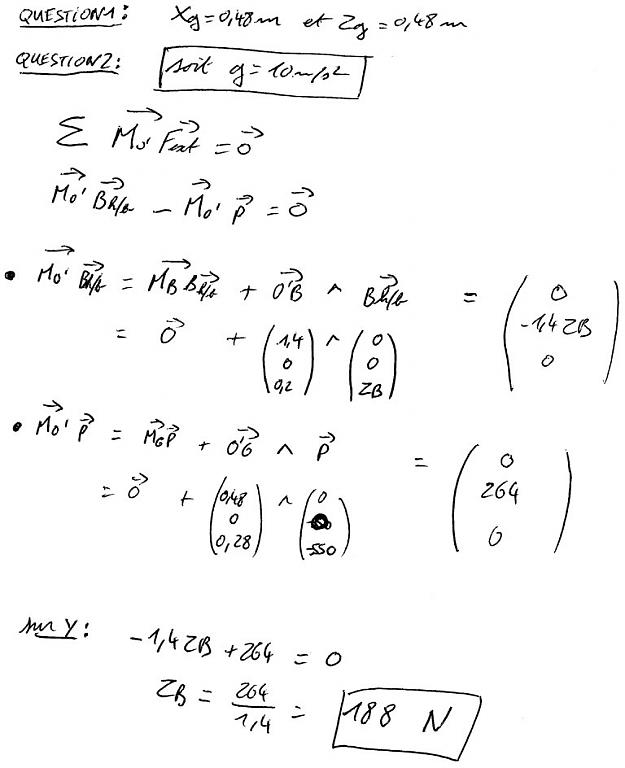 QUESTION1: Xg=0,48m et Zg=0,48m
QUESTION2: soit g=10m/s²
Σ M₀' Fext = 0
M₀' BR/B – M₀' P = 0
• M₀' BR/B = MB BR/B + O'B ∧ BR/B = (0 -1,4ZB 0)
= 0 + (1,4 0 0,2) ∧ (0 0 ZB)
• M₀' P = MG P + O'G ∧ P = (0 264 0)
= 0 + (0,48 0 0,28) ∧ (0 -550)
sur Y: -1,4ZB + 264 = 0
ZB = 264/1,4 = 188 N